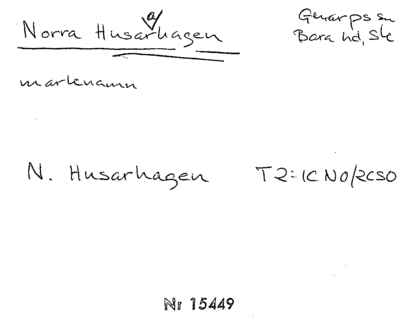 Norra Husarahagen
Gnarps sn
Bara hd, Sk
marknamn
N. Husarhagen T2:1C NO/2CSO
Nr 15449